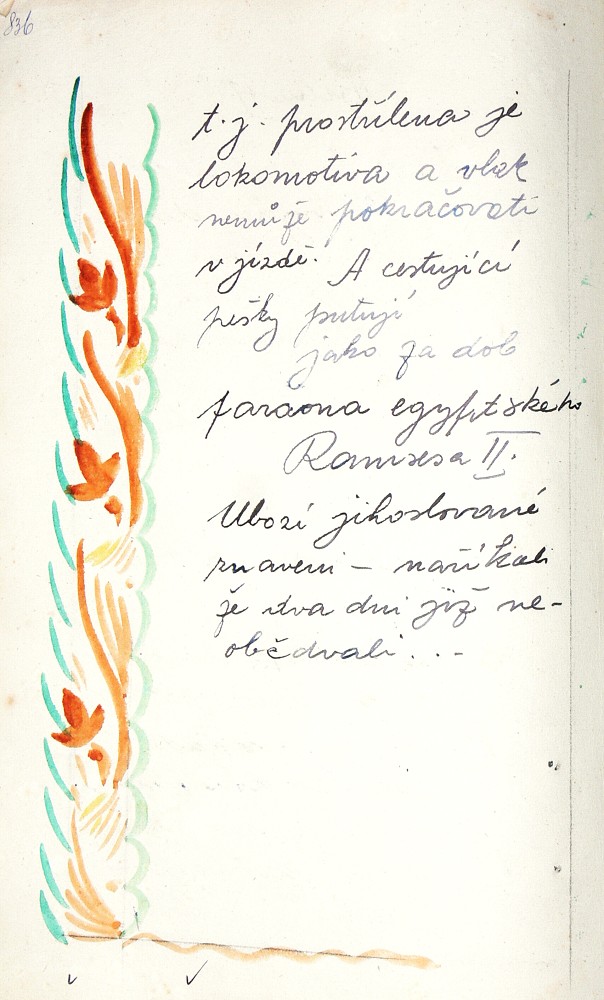 836
t. j. prostřílena je
lokomotiva a vlak
nemůže pokračovati
v jízdě. A cestující
pěšky putují
jako za dob
faraona egyptského
Ramsesa II.
Ubozí jihoslované
znaveni – naříkali
že dva dni již ne-
obědvali...